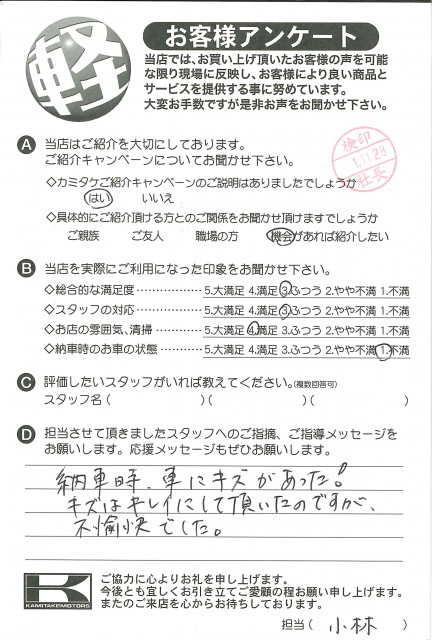 軽
お客様アンケート
当店では、お買い上げ頂いたお客様の声を可能
な限り現場に反映し、お客様により良い商品と
サービスを提供する事に努めています。
大変お手数ですが是非お声をお聞かせ下さい。
検印
1.11.28
社長
A 当店はご紹介を大切にしております。
ご紹介キャンペーンについてお聞かせ下さい。
◇カミタケご紹介キャンペーンのご説明はありましたでしょうか
はい いいえ
◇具体的にご紹介頂ける方とのご関係をお聞かせ頂けますでしょうか
ご親族 ご友人 職場の方 機会があれば紹介したい
B 当店を実際にご利用になった印象をお聞かせ下さい。
◇総合的な満足度 ……………… 5.大満足 4.満足 3.ふつう 2.やや不満 1.不満
◇スタッフの対応 ……………… 5.大満足 4.満足 3.ふつう 2.やや不満 1.不満
◇お店の雰囲気、清掃 ………… 5.大満足 4.満足 3.ふつう 2.やや不満 1.不満
◇納車時のお車の状態 ………… 5.大満足 4.満足 3.ふつう 2.やや不満 1.不満
C 評価したいスタッフがいれば教えてください。(複数回答可)
スタッフ名( )( )( )
D 担当させて頂きましたスタッフへのご指摘、ご指導メッセージを
お願いします。応援メッセージもぜひお願いします。
納車時、車にキズがあった!
キズはキレイにして頂いたのですが、
不愉快でした。
K
KAMITAKEMOTORS
ご協力に心よりお礼を申し上げます。
今後とも宜しくお引き立てご愛顧の程お願い申し上げます。
またのご来店を心からお待ちしております。
担当( 小林 )